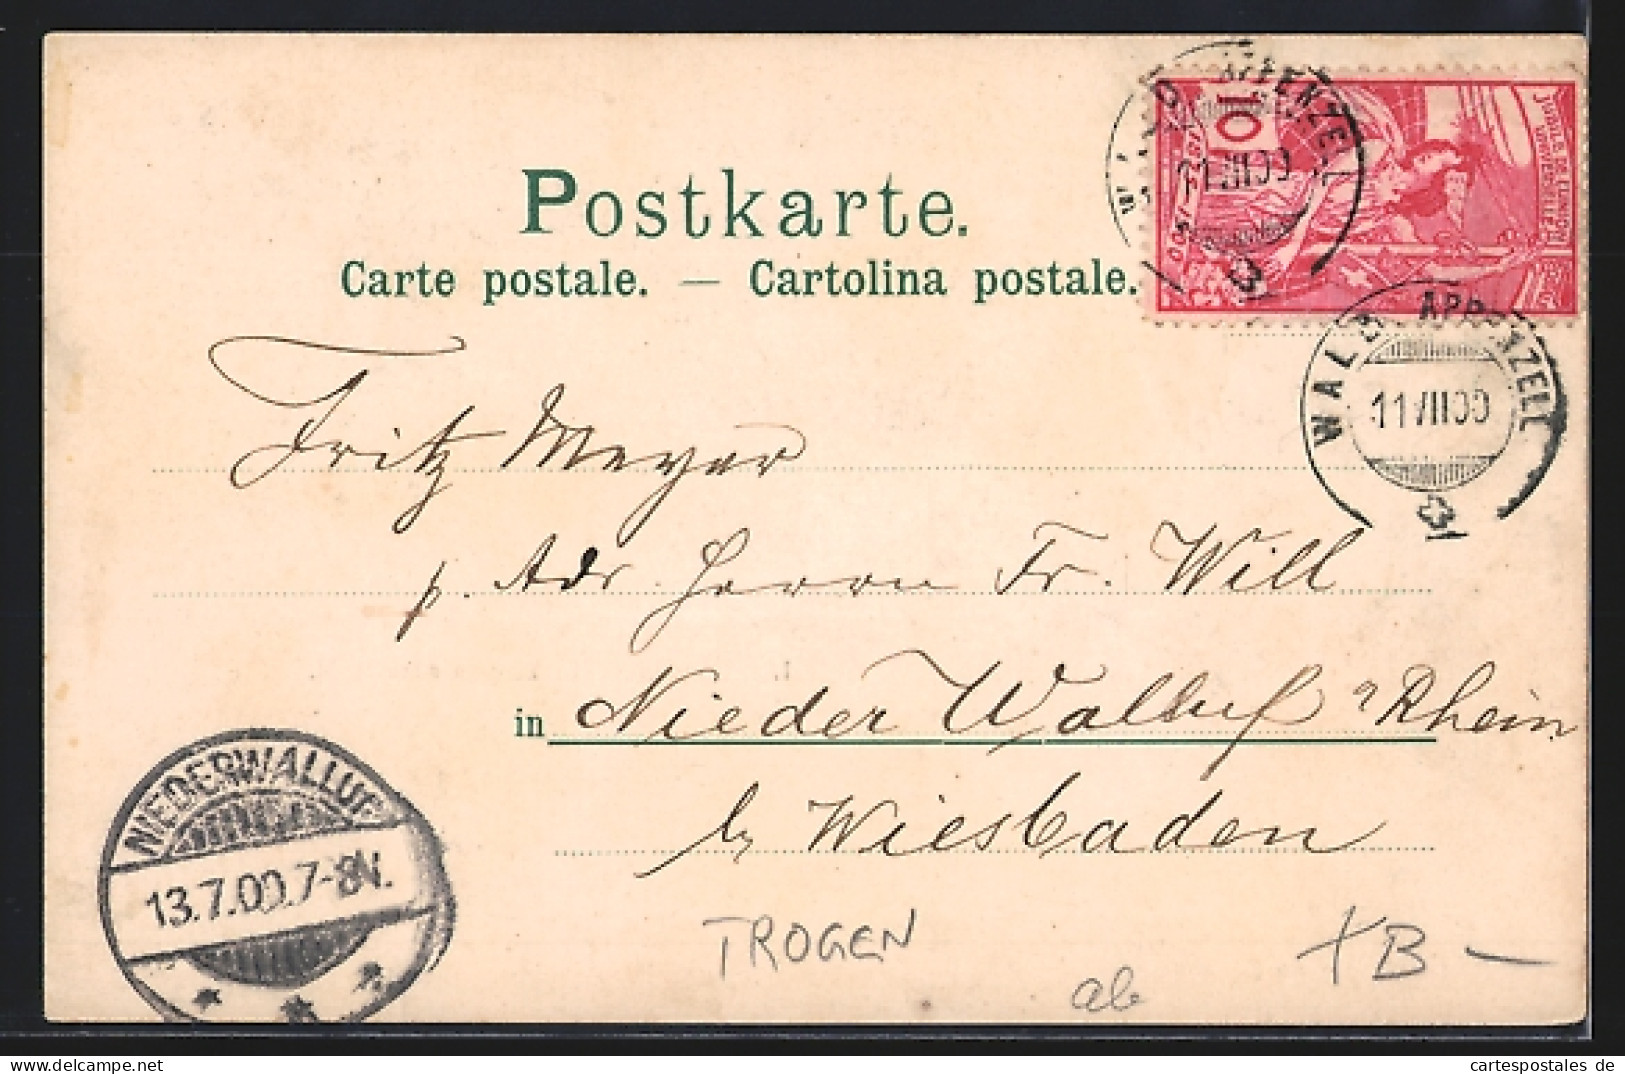 Postkarte.
Carte postale. — Cartolina postale.
10
JUBILÉ DE L'UNION POSTALE
UNIVERSELLE
WALD APPENZELL
11 VII 00
WALD APPENZELL
11 VII 00
Fritz Meyer
p. Adr. Herrn Fr. Will
in Nieder Walluf a/Rhein
b/ Wiesbaden
NIEDERWALLUF
13.7.00.7-8N.
TROGEN
ab
XB —
cartespostales.de